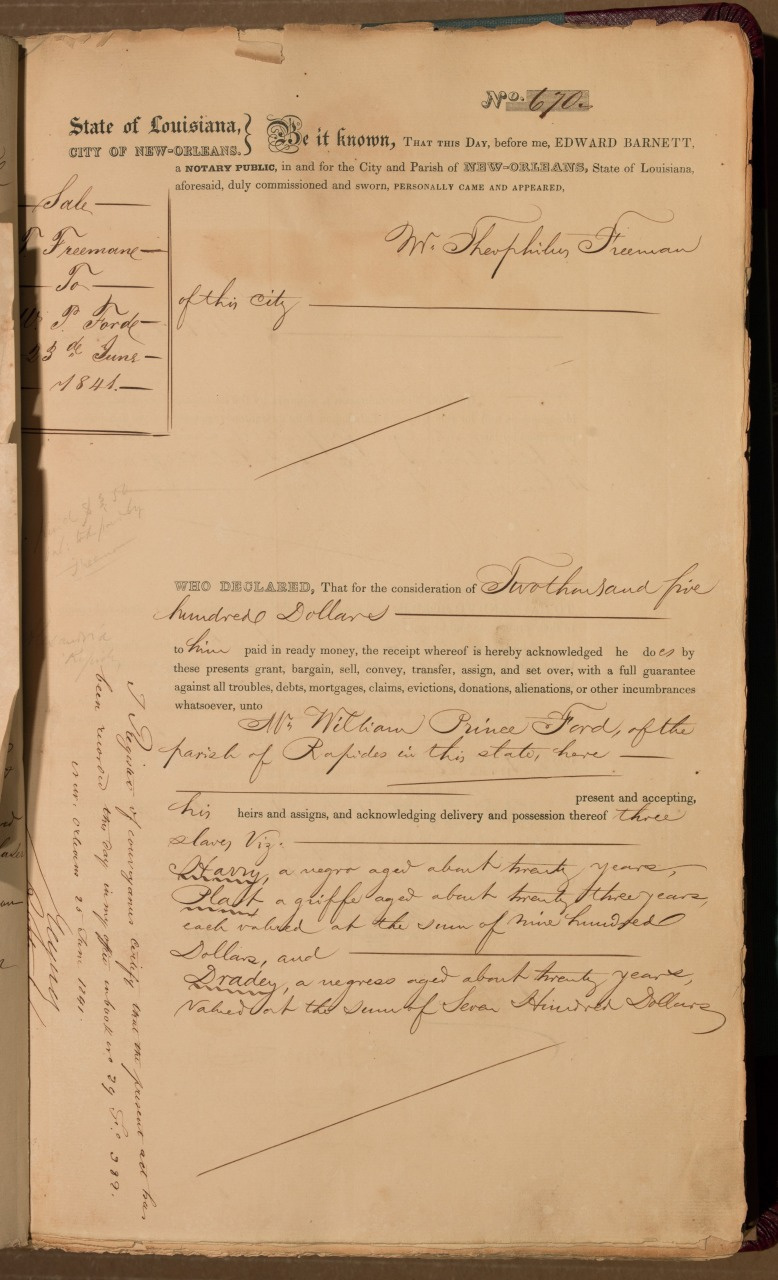 No. 670.
State of Louisiana,
CITY OF NEW-ORLEANS.
Be it known, THAT THIS DAY, before me, EDWARD BARNETT,
a NOTARY PUBLIC, in and for the City and Parish of NEW-ORLEANS, State of Louisiana,
aforesaid, duly commissioned and sworn, PERSONALLY CAME AND APPEARED,
Sale
T Freemane
To
P. Forde
23d June
1841.
Mr. Theophilus Freeman
of this city
WHO DECLARED, That for the consideration of Two thousand five
hundred Dollars
to him paid in ready money, the receipt whereof is hereby acknowledged he does by
these presents grant, bargain, sell, convey, transfer, assign, and set over, with a full guarantee
against all troubles, debts, mortgages, claims, evictions, donations, alienations, or other incumbrances
whatsoever, unto
Mr. William Prince Ford, of the
parish of Rapides in this state, here
present and accepting,
his heirs and assigns, and acknowledging delivery and possession thereof three
slaves Viz:
Harry, a negro aged about twenty years,
Platt a griffe aged about twenty three years,
each valued at the sum of nine hundred
Dollars, and
Dradey, a negress aged about twenty years,
Valued at the sum of Seven Hundred Dollars
I Register of conveyances certify that the present act has
been recorded this day in my office in book no 29 Fo 382.
New Orleans 25 June 1841.